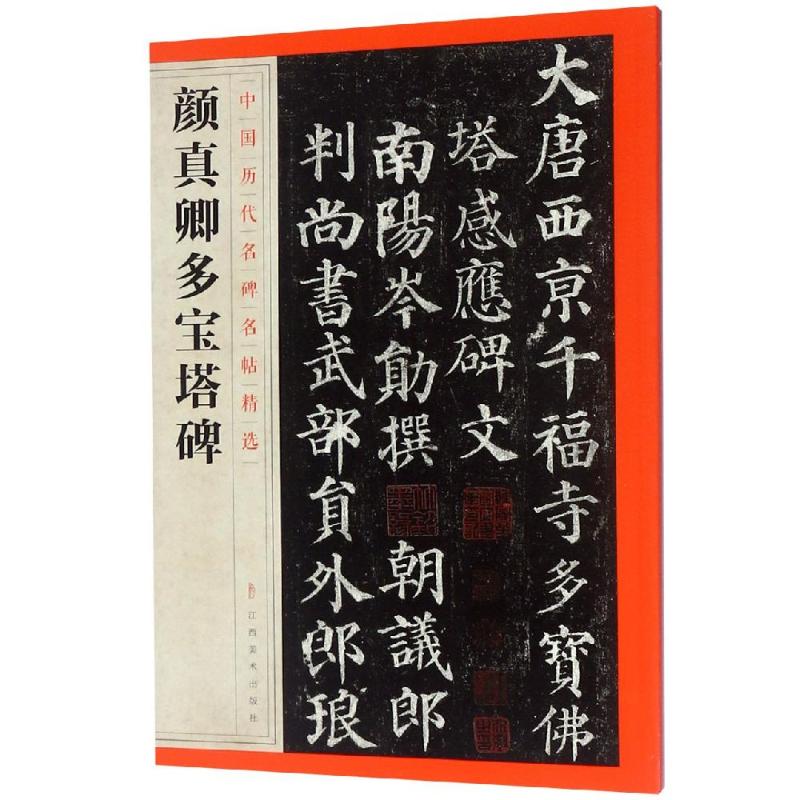 大唐西京千福寺多寶佛
塔感應碑文
南陽岑勛撰 朝議郎
判尚書武部員外郎琅
中国历代名碑名帖精选
颜真卿多宝塔碑
江西美术出版社